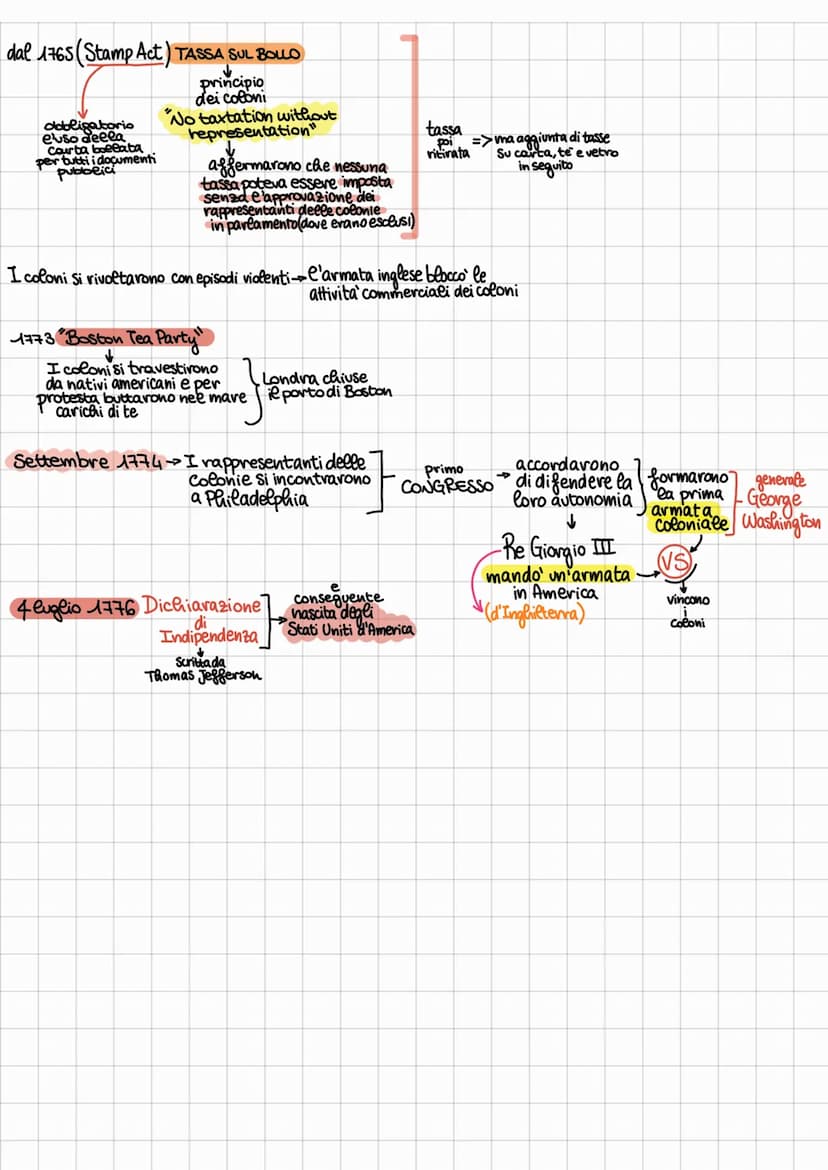 dal 1765 (Stamp Act) TASSA SUL BOLLO
principio
dei coloni
"No taxtation without
representation"
obbligatorio
l'uso della
carta bollata
per tutti i documenti
pubblici
affermarono che nessuna
tassa poteva essere imposta
senza l'approvazione dei
rappresentanti delle colonie
in parlamento (dove erano esclusi)
tassa
poi
ritirata
=> ma aggiunta di tasse
su carta, te e vetro
in seguito
I coloni si rivoltarono con episodi violenti → l'armata inglese bloccò le
attività commerciali dei coloni
1773 "Boston Tea Party"
I coloni si travestirono
da nativi americani e per
protesta buttarono nel mare
carichi di te
Londra chiuse
il porto di Boston
Settembre 1774 → I rappresentanti delle
colonie si incontrarono
a Philadelphia
primo
CONGRESSO →
accordarono
di difendere la
loro autonomia
formarono
la prima
armata
coloniale
generale
George
Washington
Re Giorgio III
mandò un'armata
in America
(d'Inghilterra)
VS
vincono
i
coloni
4 luglio 1776 Dichiarazione
di
Indipendenza
scritta da
Thomas Jefferson
e
conseguente
nascita degli
Stati Uniti d'America